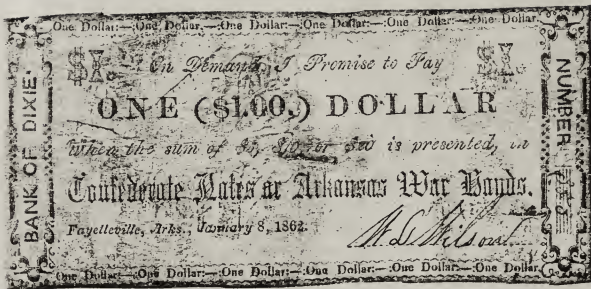 One Dollar:—:One Dollar:—:One Dollar:—:One Dollar:—:One Dollar:—:One Dollar
$1. On Demand, I Promise to Pay $1.
ONE ($1.00,) DOLLAR
When the sum of $10 or is presented, in
Confederate Notes or Arkansas War Bonds.
Fayetteville, Arks., January 8, 1862.
W. Wilson
One Dollar:—:One Dollar:—:One Dollar:—:One Dollar:—:One Dollar:—:One Dollar
BANK OF DIXIE
NUMBER